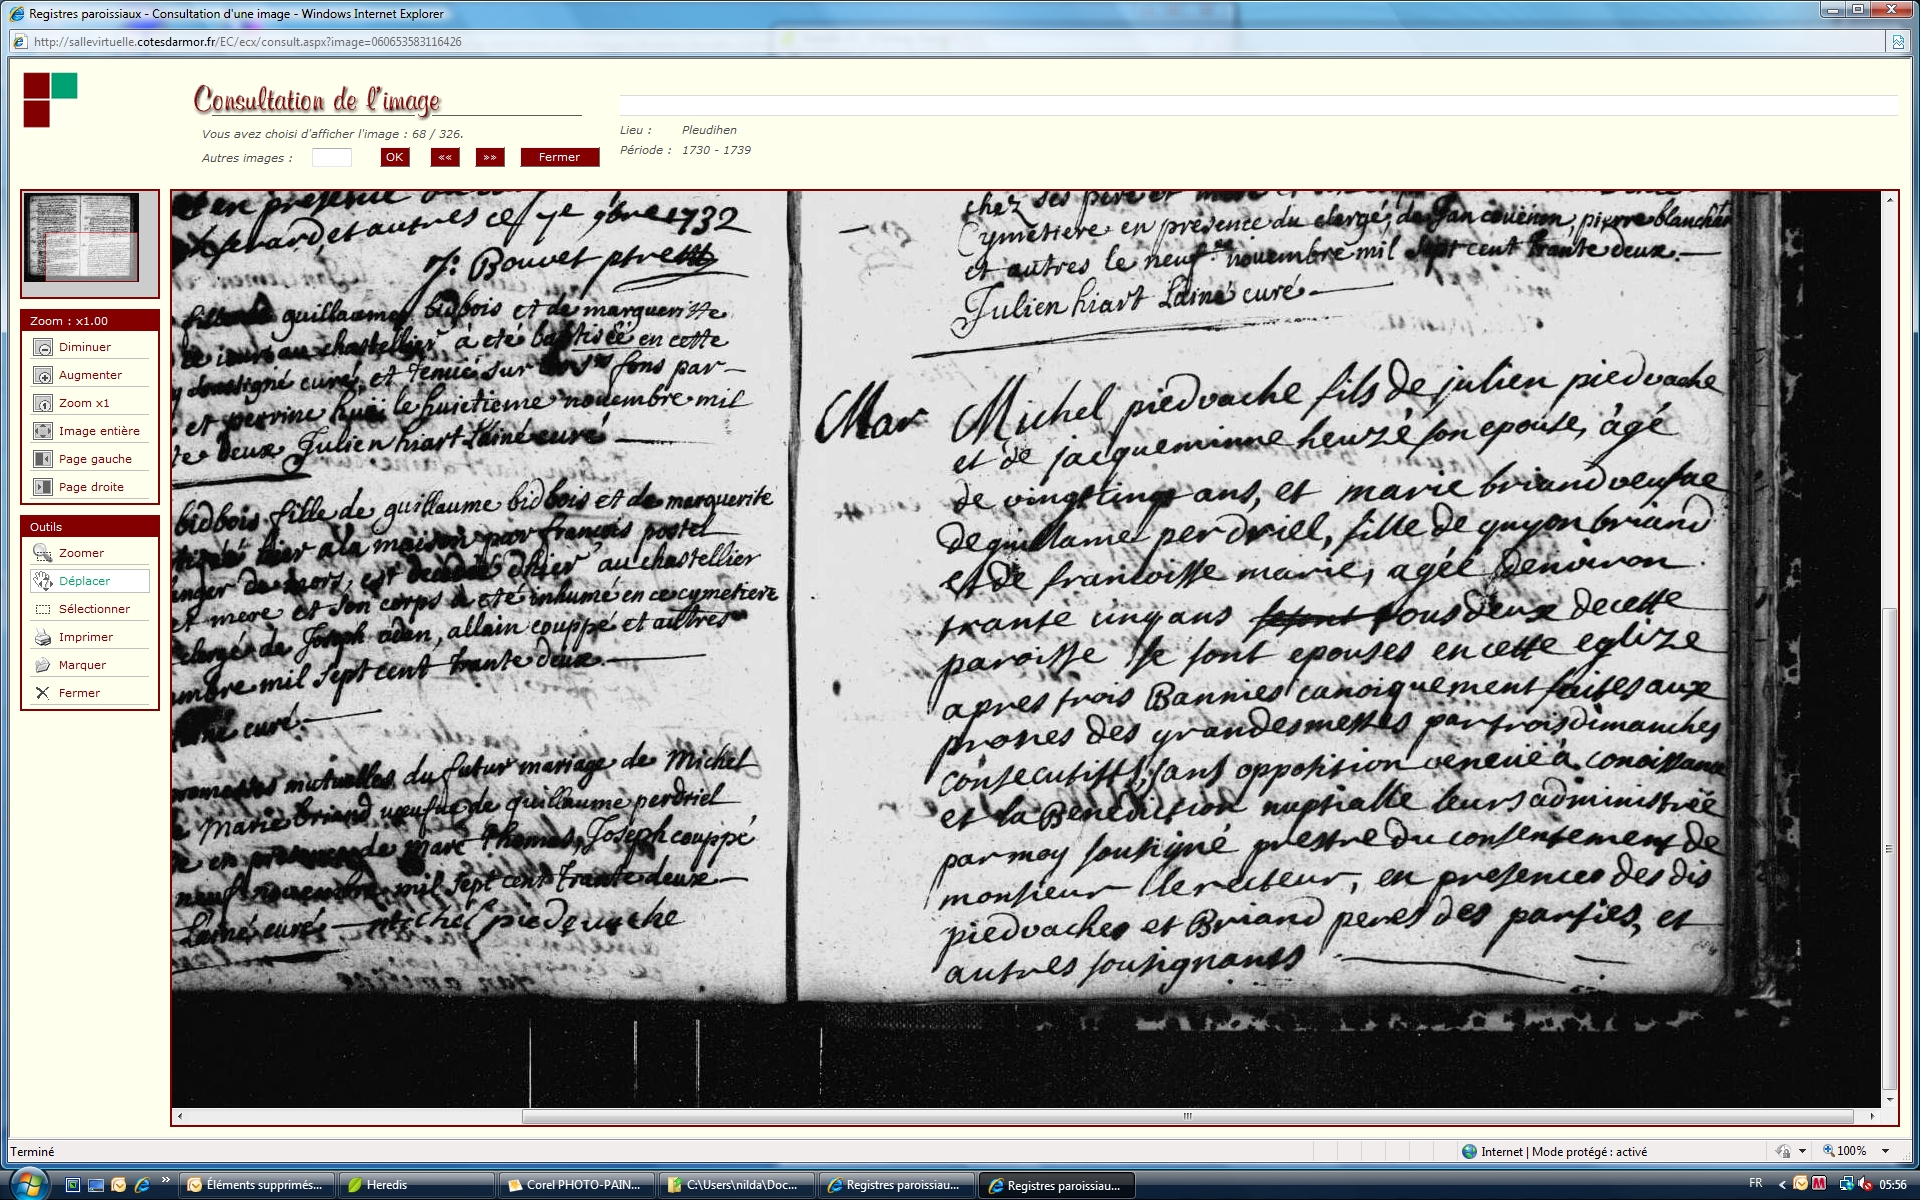 Registres paroissiaux - Consultation d'une image - Windows Internet Explorer
http://sallevirtuelle.cotesdarmor.fr/EC/ecx/consult.aspx?image=060653583116426
Consultation de l'image
Vous avez choisi d'afficher l'image : 68 / 326.
Autres images :
OK
««
»»
Fermer
Lieu : Pleudihen
Période : 1730 - 1739
Zoom : x1.00
Diminuer
Augmenter
Zoom x1
Image entière
Page gauche
Page droite
Outils
Zoomer
Déplacer
Sélectionner
Imprimer
Marquer
Fermer
et en presence
et autres ce 7e 9bre 1732
Bouvet ptre
guillaume bidbois et de margueritte
au chastellier à été baptisée en cette
curé, et tenue sur fons par
et perrine le huictieme novembre mil
deux Julien hiart Lainé curé
bidbois fille de guillaume bidbois et de marguerite
hier a la maison par françois postel
danger de mors, est decedé d'hier au chastellier
et mere et son corps a eté inhumé en ce cymetiere
clergé de Joseph aden, allain couppé et autres
mil sept cent trante deux
curé
promesses mutuelles du futur mariage de Michel
Marie briand veufue de guillaume perdriel
en presence de marc Thomas, Joseph couppé
neuf novembre mil sept cent trante deux
Lainé curé Michel piedevache
chez ses pere et mere
Cymetiere en presence du clergé, de Jan couënon, pierre blanchet
et autres le neuf novembre mil sept cent trante deux
Julien hiart Lainé curé
Mar
Michel piedvache fils de julien piedvache
et de jacqueminne heuzé son epouse, âgé
de vingt cinq ans, et marie briand veufue
de guillame perdriel, fille de guyon briand
et de francoisse marie, agéé denviron
trante cinq ans tous deux de cette
paroisse se sont epouses en cette eglize
apres trois Bannies canoiquement faites aux
prones des grandes messes par trois dimanches
consecutiffs, sans opposition veneüe à conoissance
et la Benediction nuptialle leurs administrëe
par moy sousigné prestre du consentement de
monsieur le recteur, en presences des dis
piedvaches et Briand peres des parties, et
autres sousignants
Terminé
Internet | Mode protégé : activé
100%
Éléments supprimés...
Heredis
Corel PHOTO-PAIN...
C:\Users\nilda\Doc...
Registres paroissiau...
Registres paroissiau...
FR
05:56